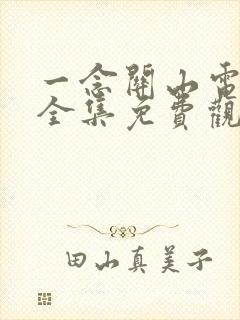 一念關山電
全集免費觀
田山真美子